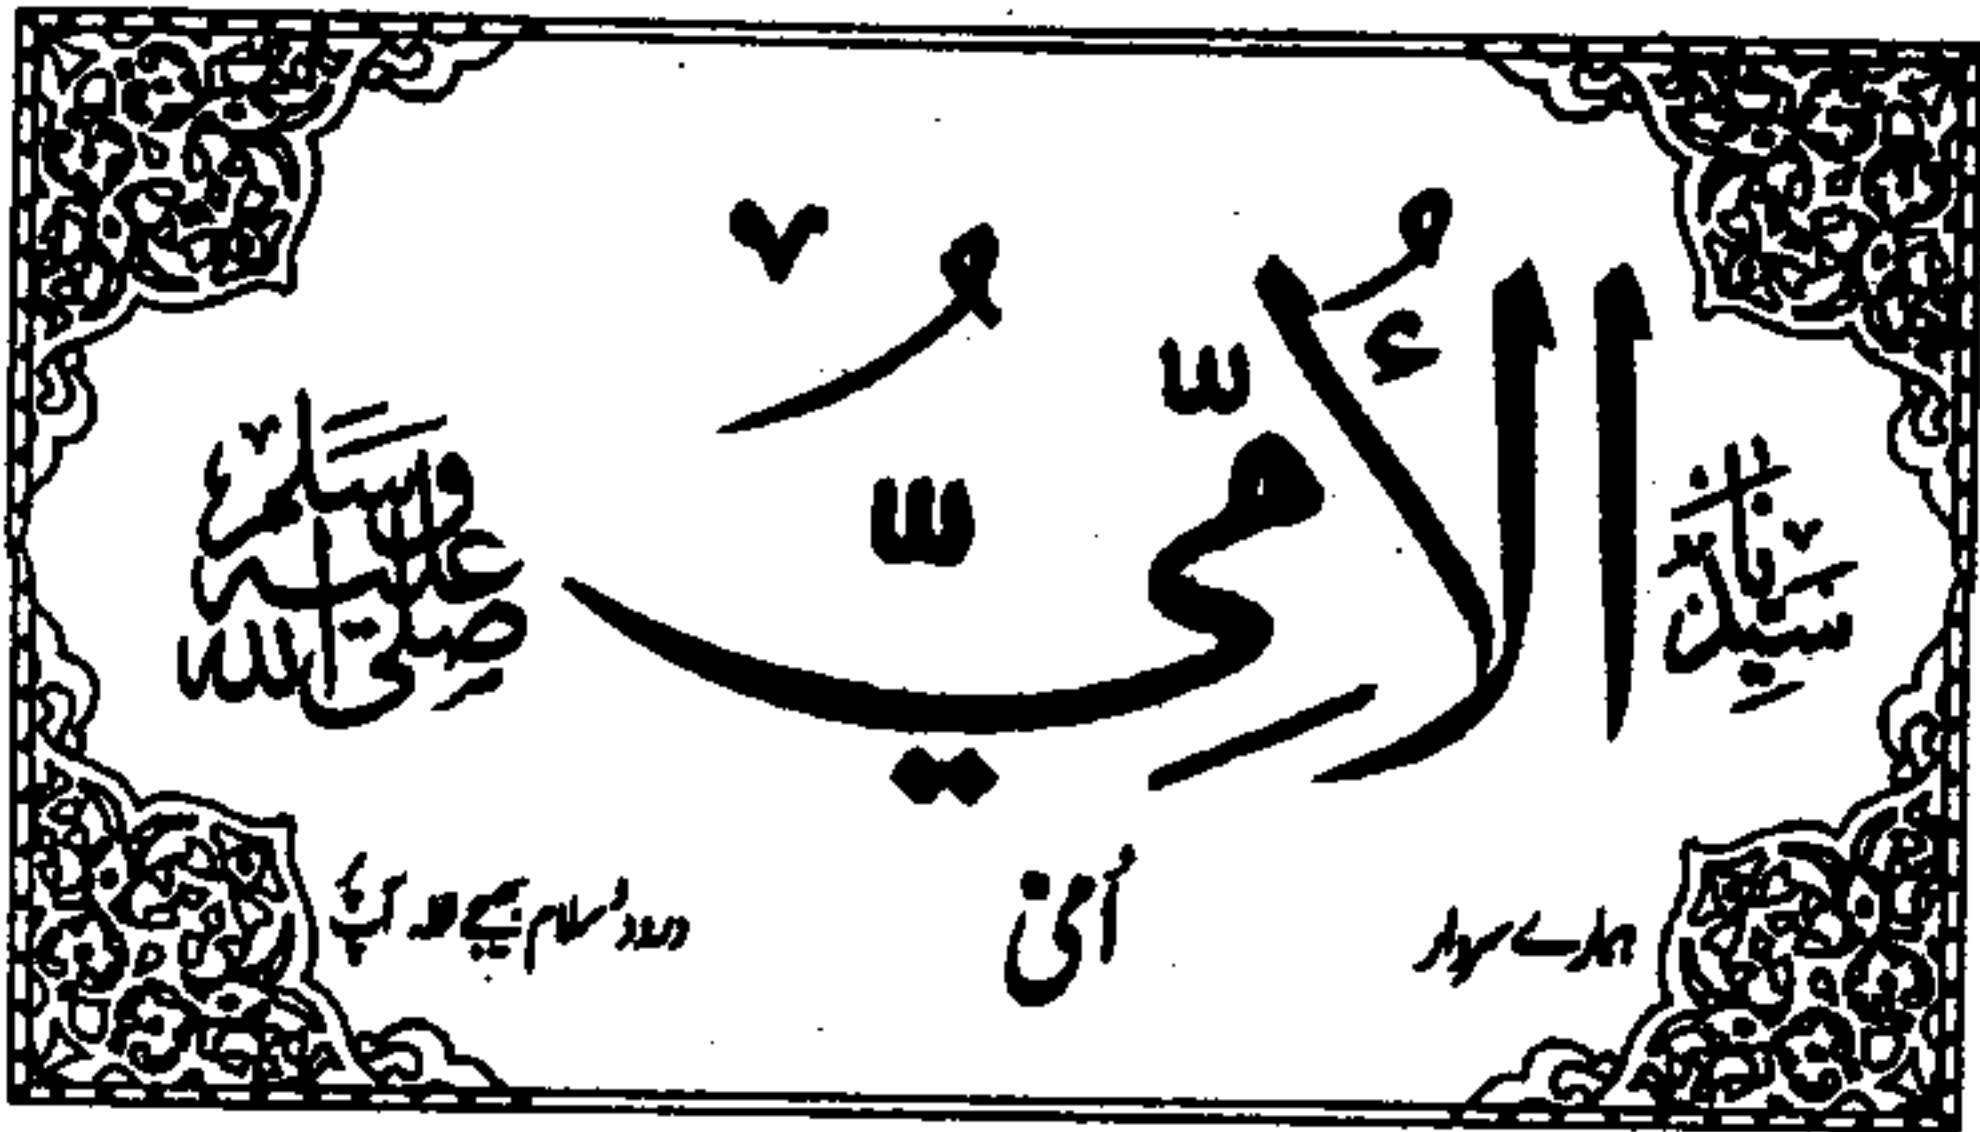 سَيِّدُنَا الْأُمِّيُّ صَلَّى اللّٰهُ عَلَيْهِ وَسَلَّمَ
ہمارے سردار اُمّی درود و سلام بھیجے اللہ آپ پر